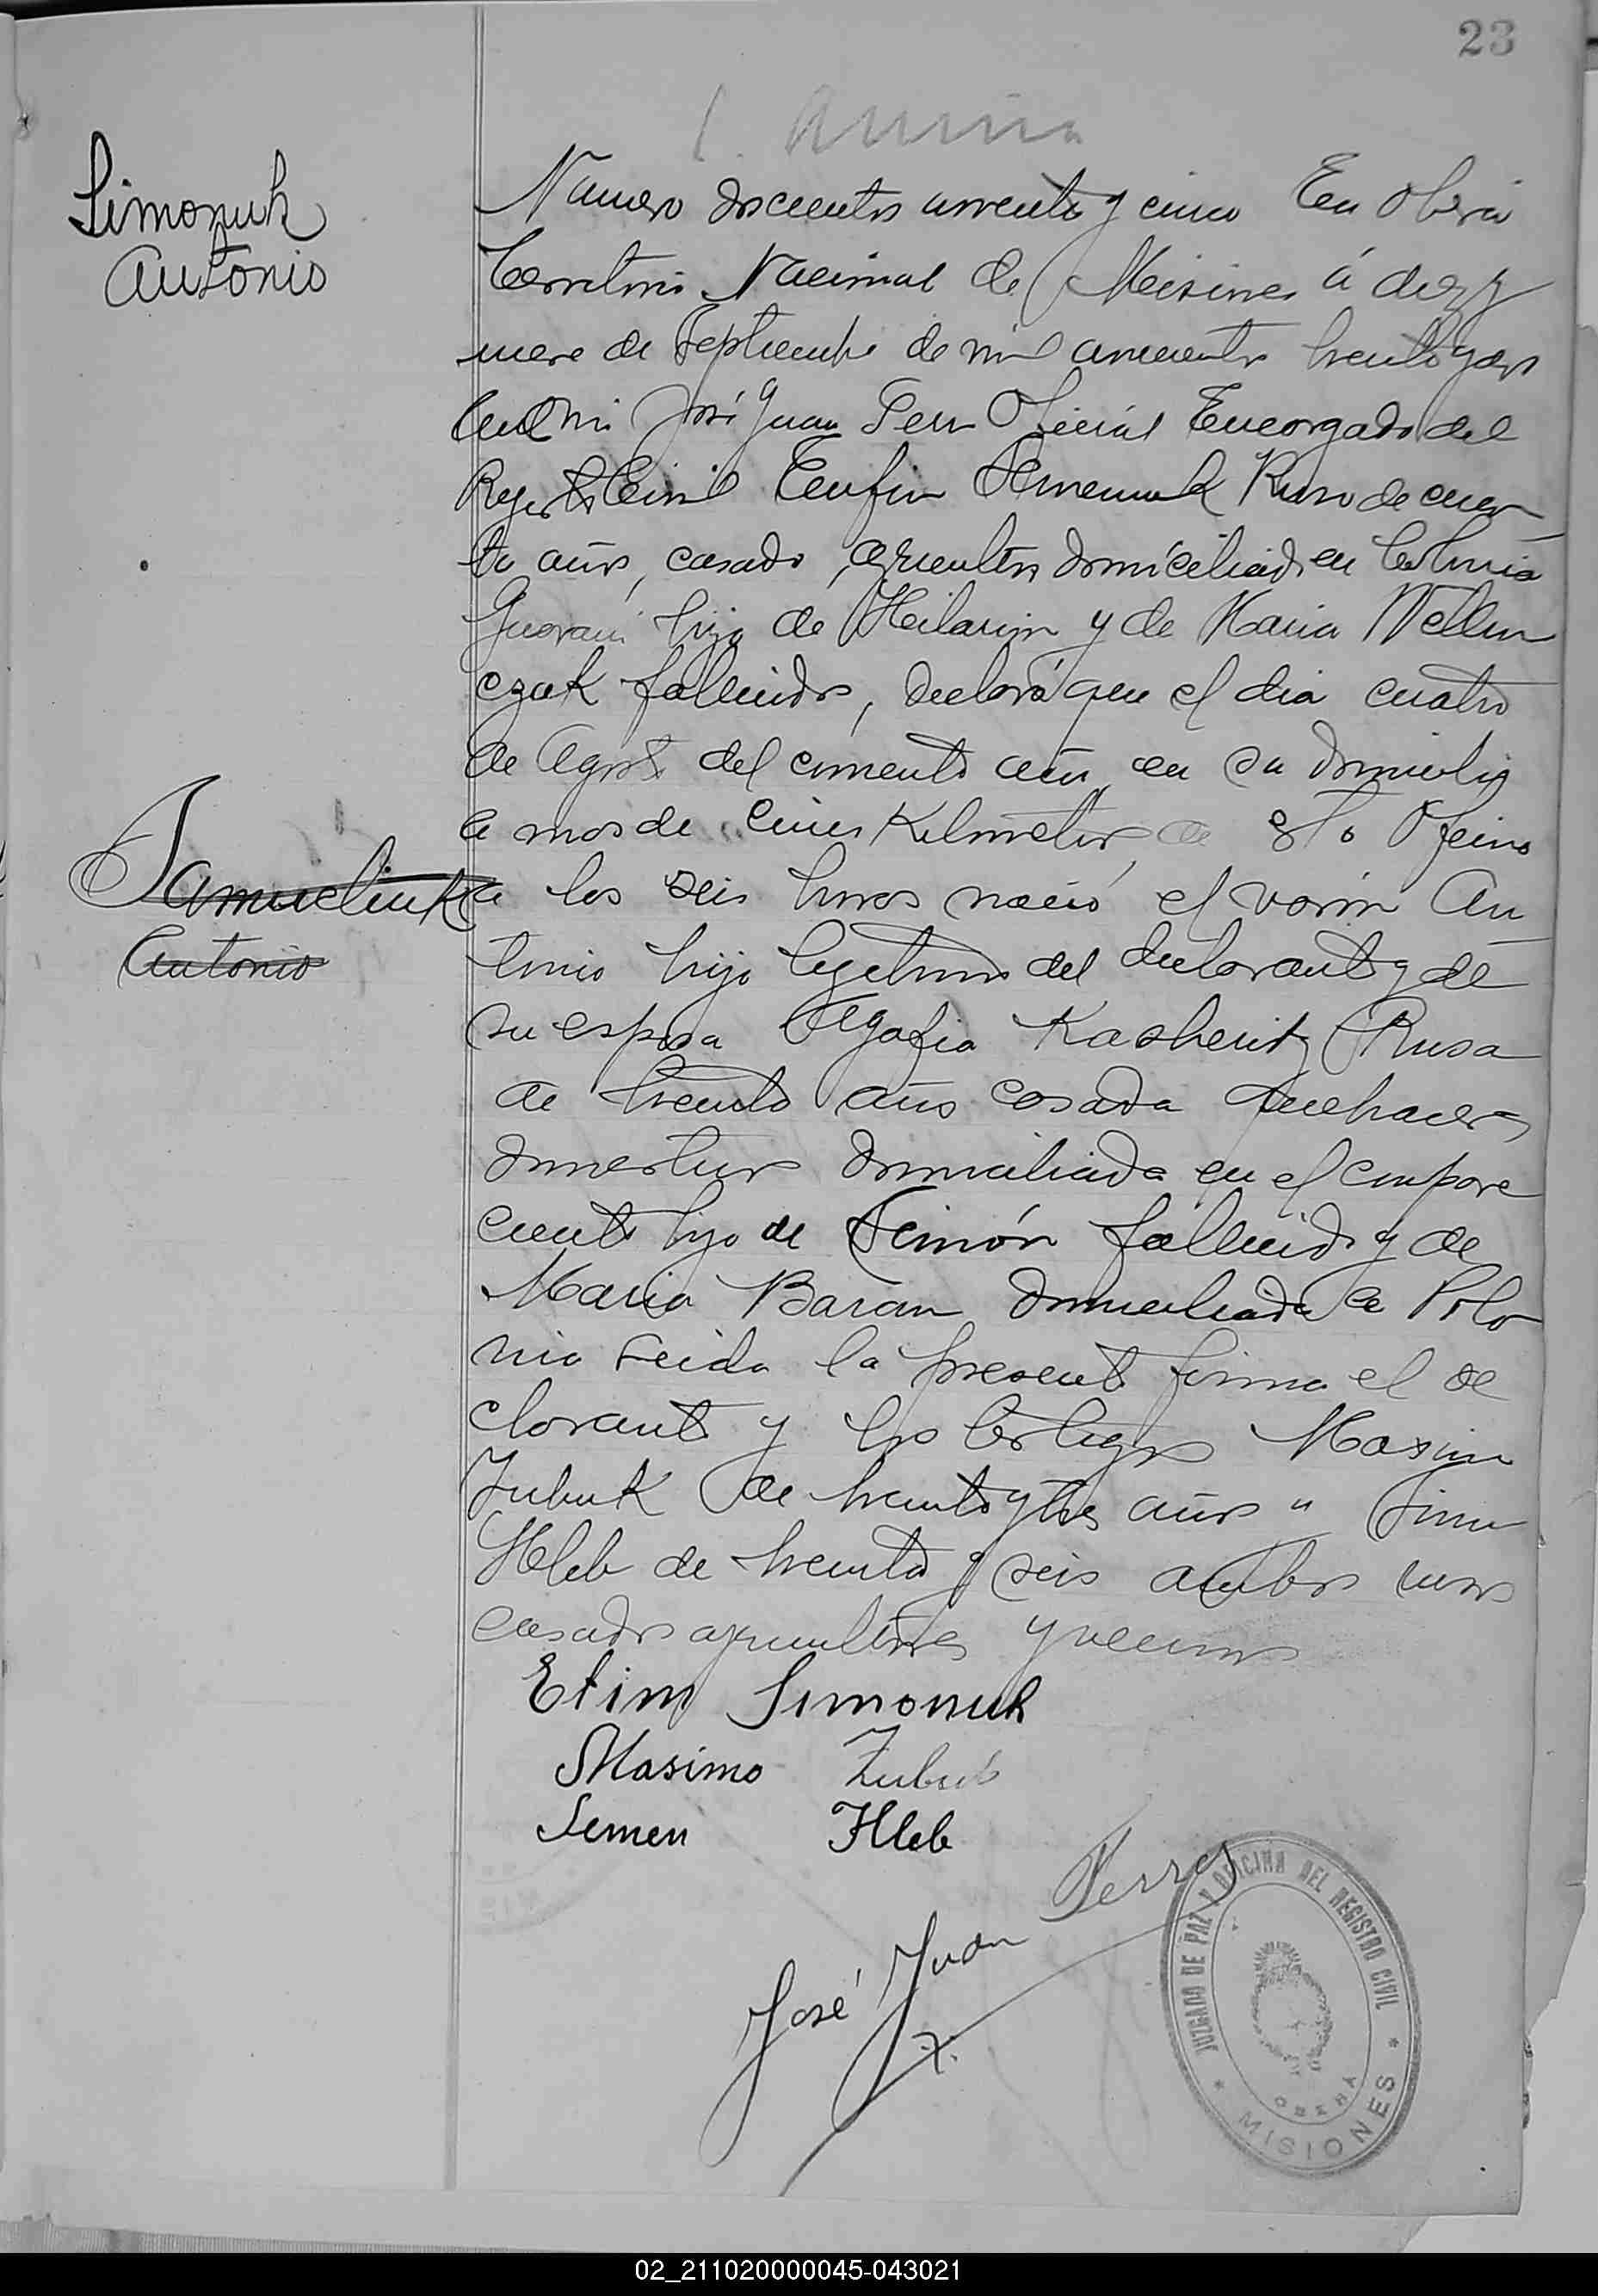 23
Simonuk
Antonio
Numero doscientos noventa y cinco En Oberá
Territorio Nacional de Misiones á diez y
nueve de Septiembre de mil novecientos treinta y dos
Ante mi José Juan Ferr Oficial Encargado del
Registro Civil Ruso de cuaren
ta años, casado, agricultor domiciliado en Colonia
Guarani hijo de Hilarion y de Maria Wellen
czuk fallecidos, declaró que el dia cuatro
de Agosto del corriente año, en su domicilio
a mas de cinco Kilometros de esta Oficina
Samueliuk a las seis horas nació el varon An
Antonio
tonio hijo legitimo del declarante y de
su esposa Agafia Kasheritz Rusa
de treinta años casada quehaceres
domesticos domiciliada en el compare
ciente hija de Simón fallecido y de
Maria Baran domiciliada en Polo
nia Leida la presente firma el de
clarante y los testigos Maxim
Zubuk de treinta y tres años y Simon
Hleb de treinta y seis ambos rusos
casados agricultores y vecinos
Efim Simonuk
Masimo Zubuk
Semen Hleb
José Juan Ferrey
JUZGADO DE PAZ Y OFICINA DEL REGISTRO CIVIL
OBERÁ
* MISIONES *
02_211020000045-043021